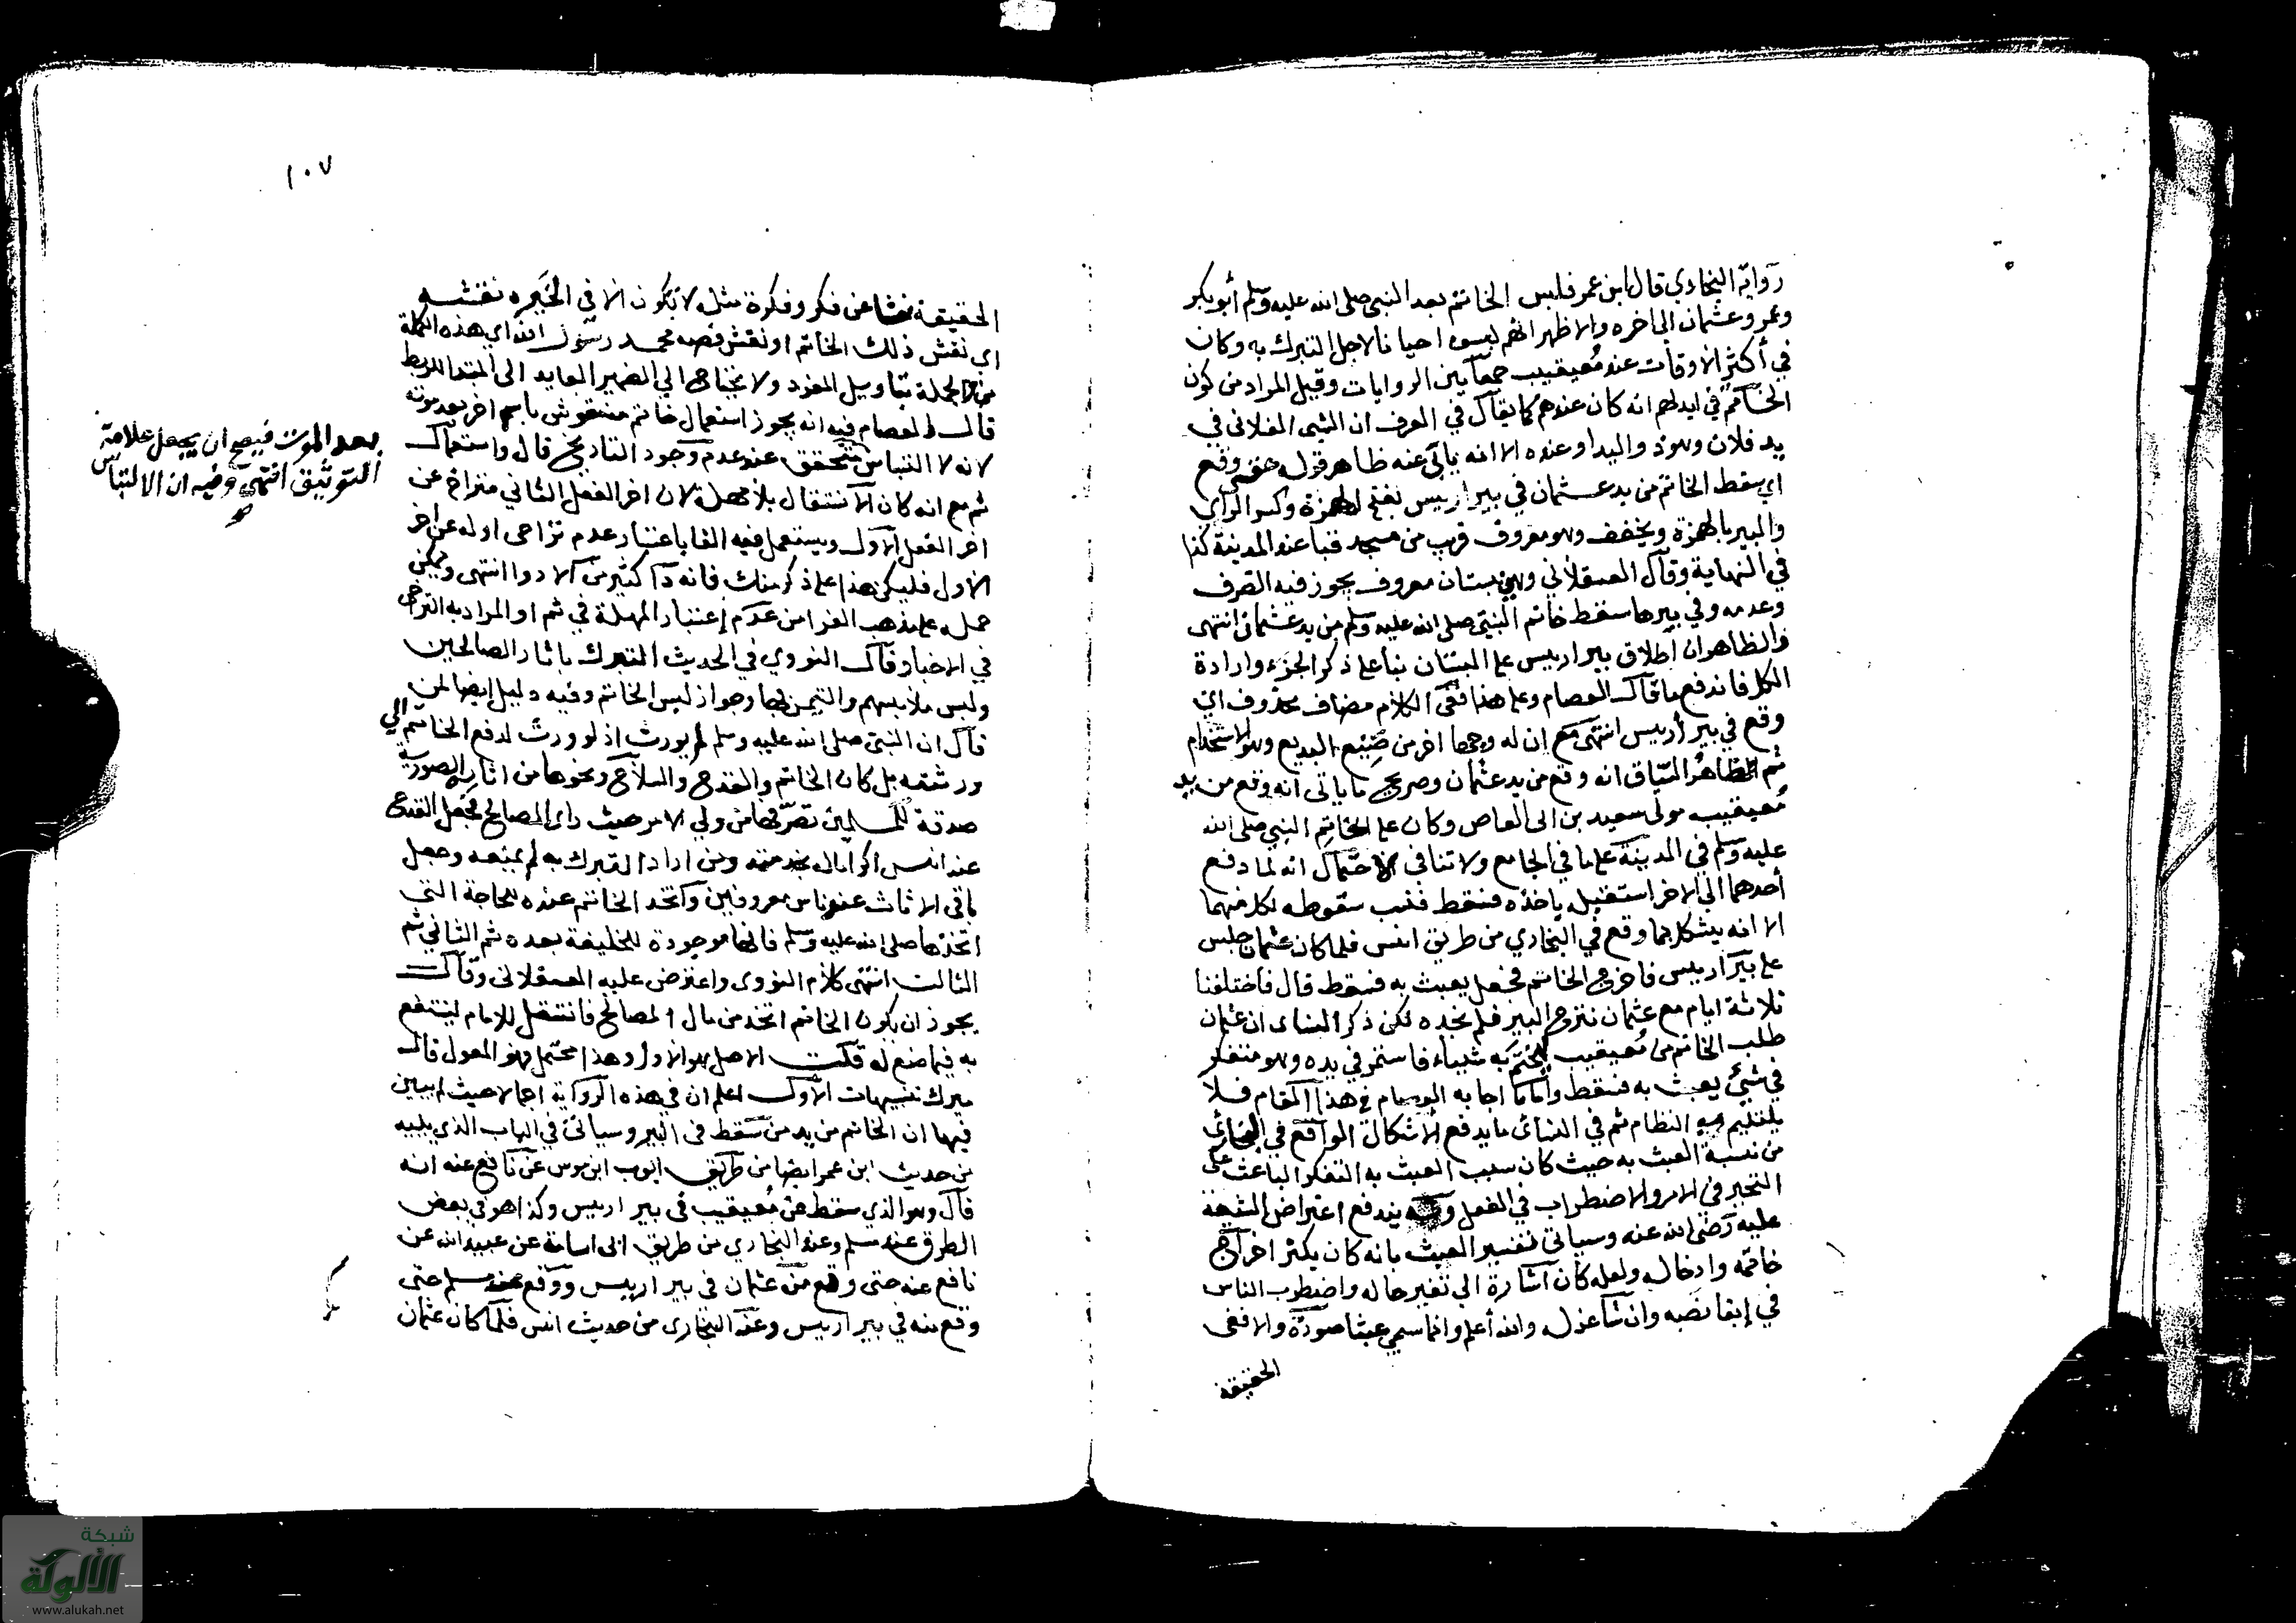 رواية البخاري قال ابن عمر فلبس الخاتم بعد النبي صلى الله عليه وسلم أبو بكر
وعمر وعثمان الى اخره والاظهر انهم لبسوه احيانا لاجل التبرك به وكان
في أكثر الأوقات عند مُعيقيب جمعا بين الروايات وقيل المراد من كون
الخاتم في ايديهم انه كان عندهم كما يقال في العرف ان الشيء الفلاني في
يد فلان وهو ذو اليد او عنده الا انه يأبى عنه ظاهر قوله حتى وقع
اي سقط الخاتم من يد عثمان في بير أريس بفتح الهمزة وكسر الراي
والبير بالهمزة ويخفف وهو معروف قريب من مسجد قبا عند المدينة كذا
في النهاية وقال العسقلاني وهي بستان معروف يجوز فيه الصرف
وعدمه وفي بيرها سقط خاتم النبي صلى الله عليه وسلم من يد عثمان انتهى
والظاهر ان اطلاق بير اريس على البستان بناء على ذكر الجزء وارادة
الكل فاندفع ما قال العصام وعلى هذا ففي الكلام مضاف محذوف اي
وقع في بير أريس انتهى مع ان له وجها اخر من صنيع البديع وهو الاستخدام
ثم ظاهر السياق انه وقع من يد عثمان وصريح ما يأتى انه وقع من يد
مُعيقيب مولى سعيد بن ابى العاص وكان على خاتم النبي صلى الله
عليه وسلم في المدينة على ما في الجامع ولا تنافى لاحتمال انه لما دفع
أحدهما الى الاخر استقبله ياخذه فسقط فنسب سقوطه لكل منهما
الا انه يشكل بما وقع في البخاري من طريق انس فلما كان عثمان جلس
على بير اريس فاخرج الخاتم فجعل يعبث به فسقط قال فاختلفنا
ثلاثة ايام مع عثمان ننزح البير فلم نجده لكن ذكر النساى ان عثمان
طلب الخاتم من مُعيقيب ليختم به شيياء فاستمر في يده وهو متفكر
في شيئ يعبث به فسقط وأما ما اجابه العصام في هذا المقام فلا
يلتئم به النظام ثم في النسائى ما يدفع الاشكال الواقع في البخارى
من نسبة العبث به حيث كان سبب العبث به التفكر الباعث على
التحير في الامر والاضطراب في الفعل وبه يندفع اعتراض الشيعة
عليه رضى الله عنه وسياتى تفسير العبث بانه كان يكثر اخراج
خاتمه وادخاله ولعله كان اشارة الى تغير حاله واضطرب الناس
في إبقا نصبه وانشا عزله والله أعلم وانما سمي عبثا صورة والا ففى
الحقيقة
١٠٧
الحقيقة نشا عن فكر وفكرة مثله لا تكون الا في الخير ه نقشه
اي نقش ذلك الخاتم او نقش فصه محمد رسول الله اي هذه الكلمة
من الجملة بتاويل المفرد ولا يحتاج الى الضمير العايد الى المبتدا للربط
قال العصام فيه انه يجوز استعمال خاتم منقوش باسم اخر بعد موته
لانه لا التباس يتحقق عند عدم وجود التاريخ قال واستعمال
ثم مع انه كان الانتقال بلا مهلة لان اخر الفعل الثاني متراخ عن
اخر الفعل الأول ويستعمل فيه الفا باعتبار عدم تراخى اوله عن اخر
الاول فليكن هذا على ذكر منك فانه دا كثير من الادوا انتهى ويمكن
حمله على مذهب الفرا من عدم إعتبار المهلة في ثم او المراد به التراخى
في الاخبار وقال النووي في الحديث التبرك باثار الصالحين
ولبس ملابسهم والتيمن بها وجواز لبس الخاتم وفيه دليل ايضا لمن
قال ان النبي صلى الله عليه وسلم لم يورث اذ لو ورث لدفع الخاتم الي
ورثته بل كان الخاتم والقدح والسلاح ونحوها من اثاره الصورية
صدقة للمسلمين تصرفها من ولي الامر حيث راى المصالح فجعل القدح
عند انس اكراما له بخدمته ومن اراد التبرك به لم يمنعه وجعل
باقى الاثاث عند ناس معروفين واتخذ الخاتم عنده للحاجة التى
اتخذها صلى الله عليه وسلم فانها موجودة للخليفة بعده ثم الثانى ثم
الثالث انتهى كلام النووى واعترض عليه العسقلانى وقال
يجوز ان يكون الخاتم اتخذ من مال المصالح فانتقل للامام لينتفع
به فيما صنع له قلت الاصل هو الاول وهذا محتمل فهو المعول قال
ميرك تنبيهات الأول اعلم ان في هذه الرواية اجمالا حيث لم يبين
فيها ان الخاتم من يد من سقط فى البير وسياتى في الباب الذي يليه
من حديث ابن عمر ايضا من طريق ايوب ابن موسى عن نافع عنه انه
قال وهو الذي سقط من مُعيقيب في بير اريس وكذا هو في بعض
الطرق عند مسلم وعند البخاري من طريق ابى اسامة عن عبيد الله عن
نافع عنه حتى وقع من عثمان فى بير اريس ووقع عند مسلم حتى
وقع منه في بير اريس وعند البخارى من حديث انس فلما كان عثمان
بعد الموت فيصح ان يجعل علامة
التوثيق انتهى وفيه ان الالتباس
شبكة
الألوكة
www.alukah.net